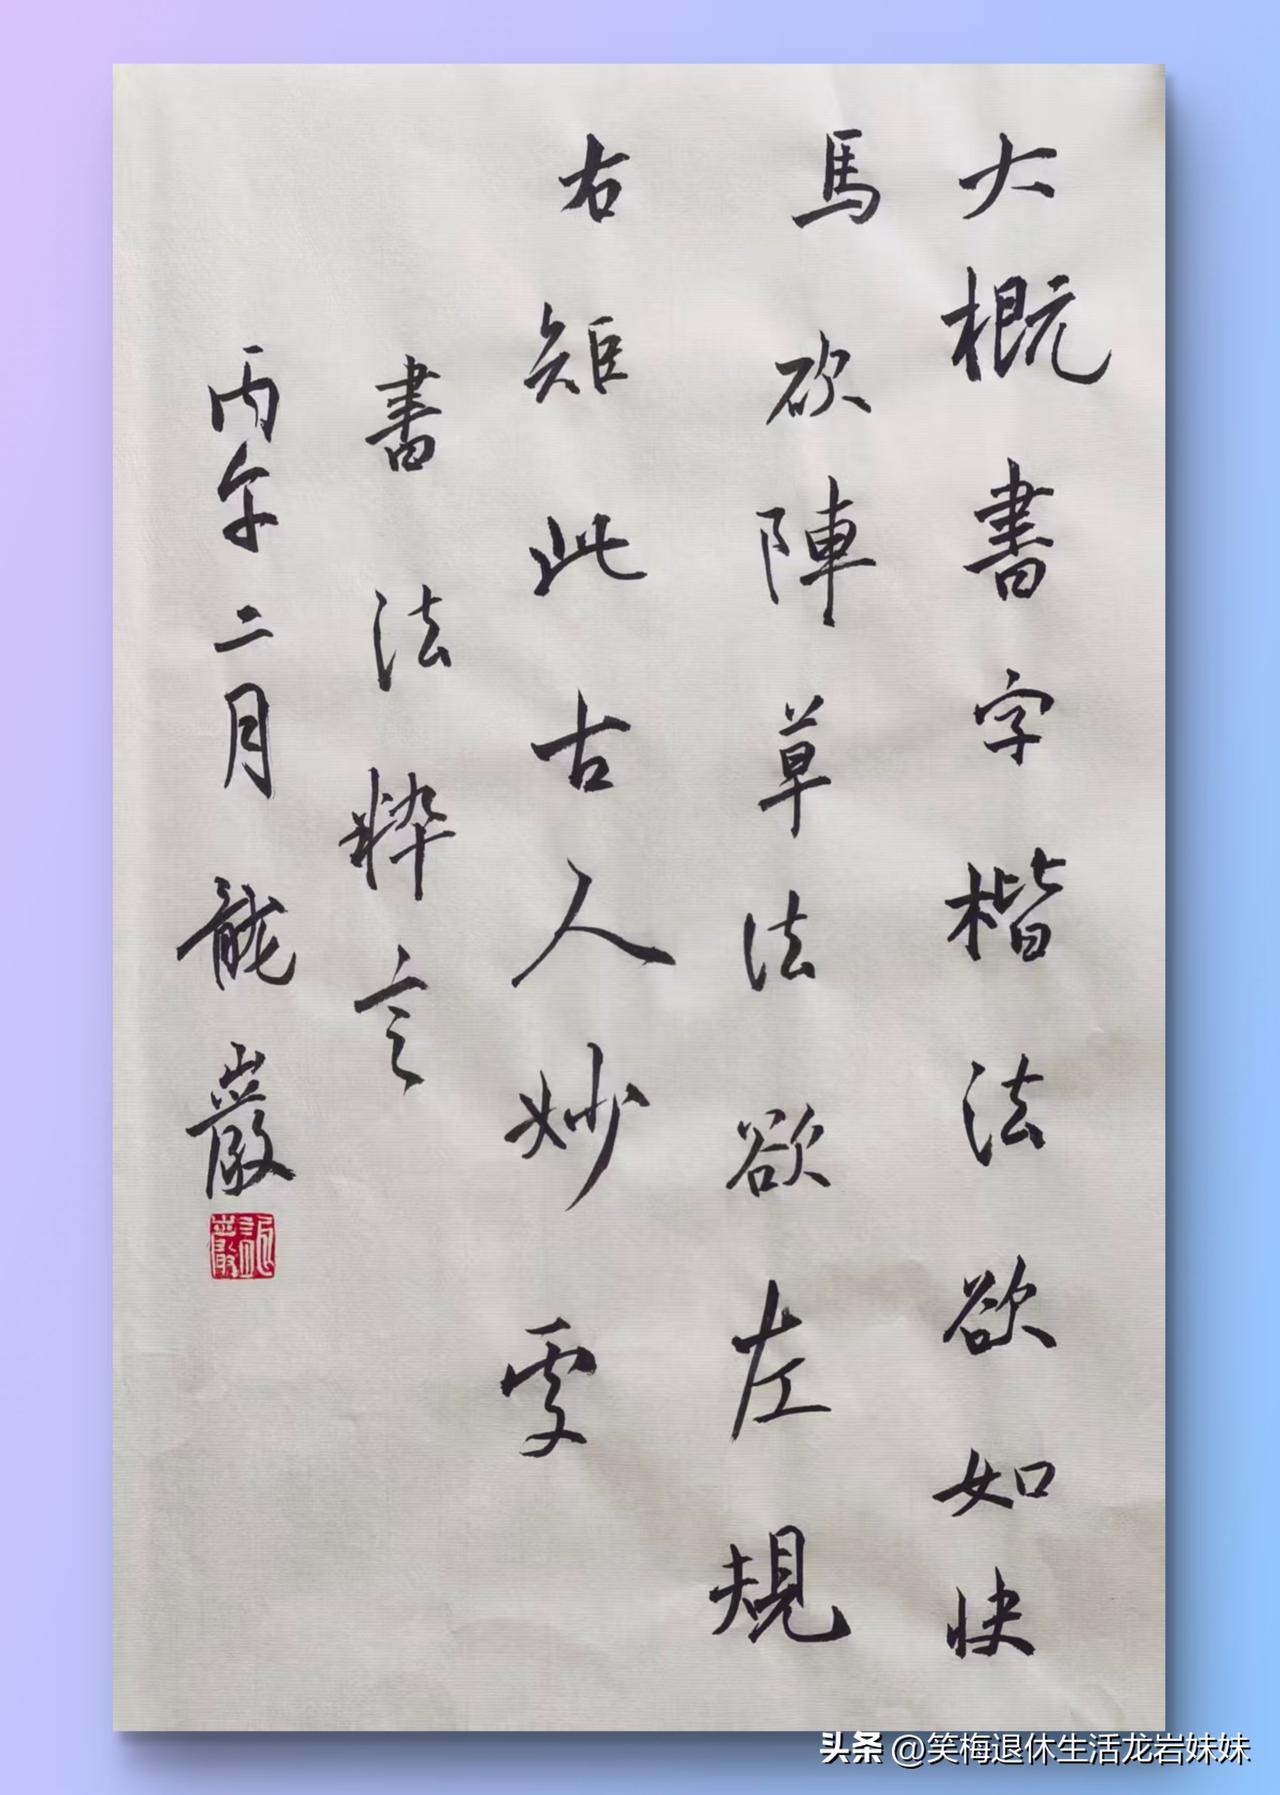 大概書字楷法欲如快
馬砍陣草法欲左規
右矩此古人妙处
書法粹言
丙午二月 龍巖
头条 @笑梅退休生活龙岩妹妹